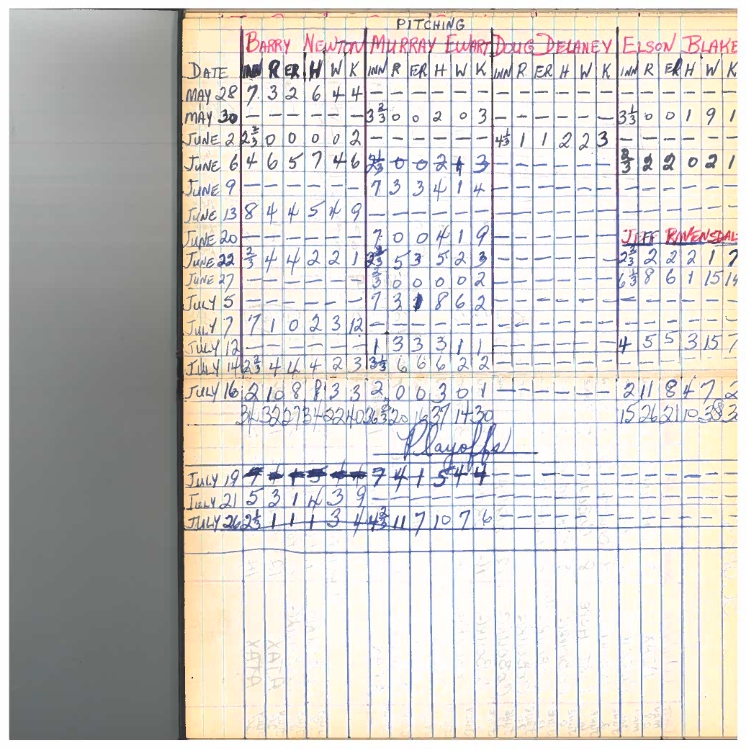 PITCHING
BARRY NEWTON MURRAY EWART DOUG DELANEY ELSON BLAKE
DATE INN R ER H W K INN R ER H W K INN R ER H W K INN R ER H W K
MAY 28 7 3 2 6 4 4 - - - - - - - - - - - - - - - - - -
MAY 30 - - - - - - 3 2/3 0 0 2 0 3 - - - - - - 3 1/3 0 0 1 9 1
JUNE 2 2 2/3 0 0 0 0 2 - - - - - - 4 1/3 1 1 2 2 3 - - - - - -
JUNE 6 4 6 5 7 4 6 2 1/3 0 0 2 1 3 - - - - - - 2/3 2 2 0 2 1
JUNE 9 - - - - - - 7 3 3 4 1 4 - - - - - - - - - - - -
JUNE 13 8 4 4 5 4 9 - - - - - - - - - - - - - - - - - -
JUNE 20 - - - - - - 7 0 0 4 1 9 - - - - - - JEFF RAVENSDAL
JUNE 22 2/3 4 4 2 2 1 2 2/3 5 3 5 2 3 - - - - - - 2 2/3 2 2 2 1 7
JUNE 27 - - - - - - 1/3 0 0 0 0 2 - - - - - - 6 1/3 8 6 1 15 14
JULY 5 - - - - - - 7 3 1 8 6 2 - - - - - - - - - - - -
JULY 7 7 1 0 2 3 12 - - - - - - - - - - - - - - - - - -
JULY 12 - - - - - - 1 3 3 3 1 1 - - - - - - 4 5 5 3 15 7
JULY 14 2 2/3 4 4 4 2 3 3 1/3 6 6 6 2 2 - - - - - - - - - - - -
JULY 16 2 10 8 8 3 3 2 0 0 3 0 1 - - - - - - 2 11 8 4 7 2
34 32 27 34 22 40 36 2/3 20 16 37 14 30 15 26 21 10 38 3
Playoffs
JULY 19 7 4 1 5 4 4 - - - - - - - - - - - -
JULY 21 5 3 1 4 3 9 - - - - - - - - - - - - - - - - - -
JULY 26 2 1/3 1 1 1 3 4 4 2/3 11 7 10 7 6 - - - - - - - - - - - -